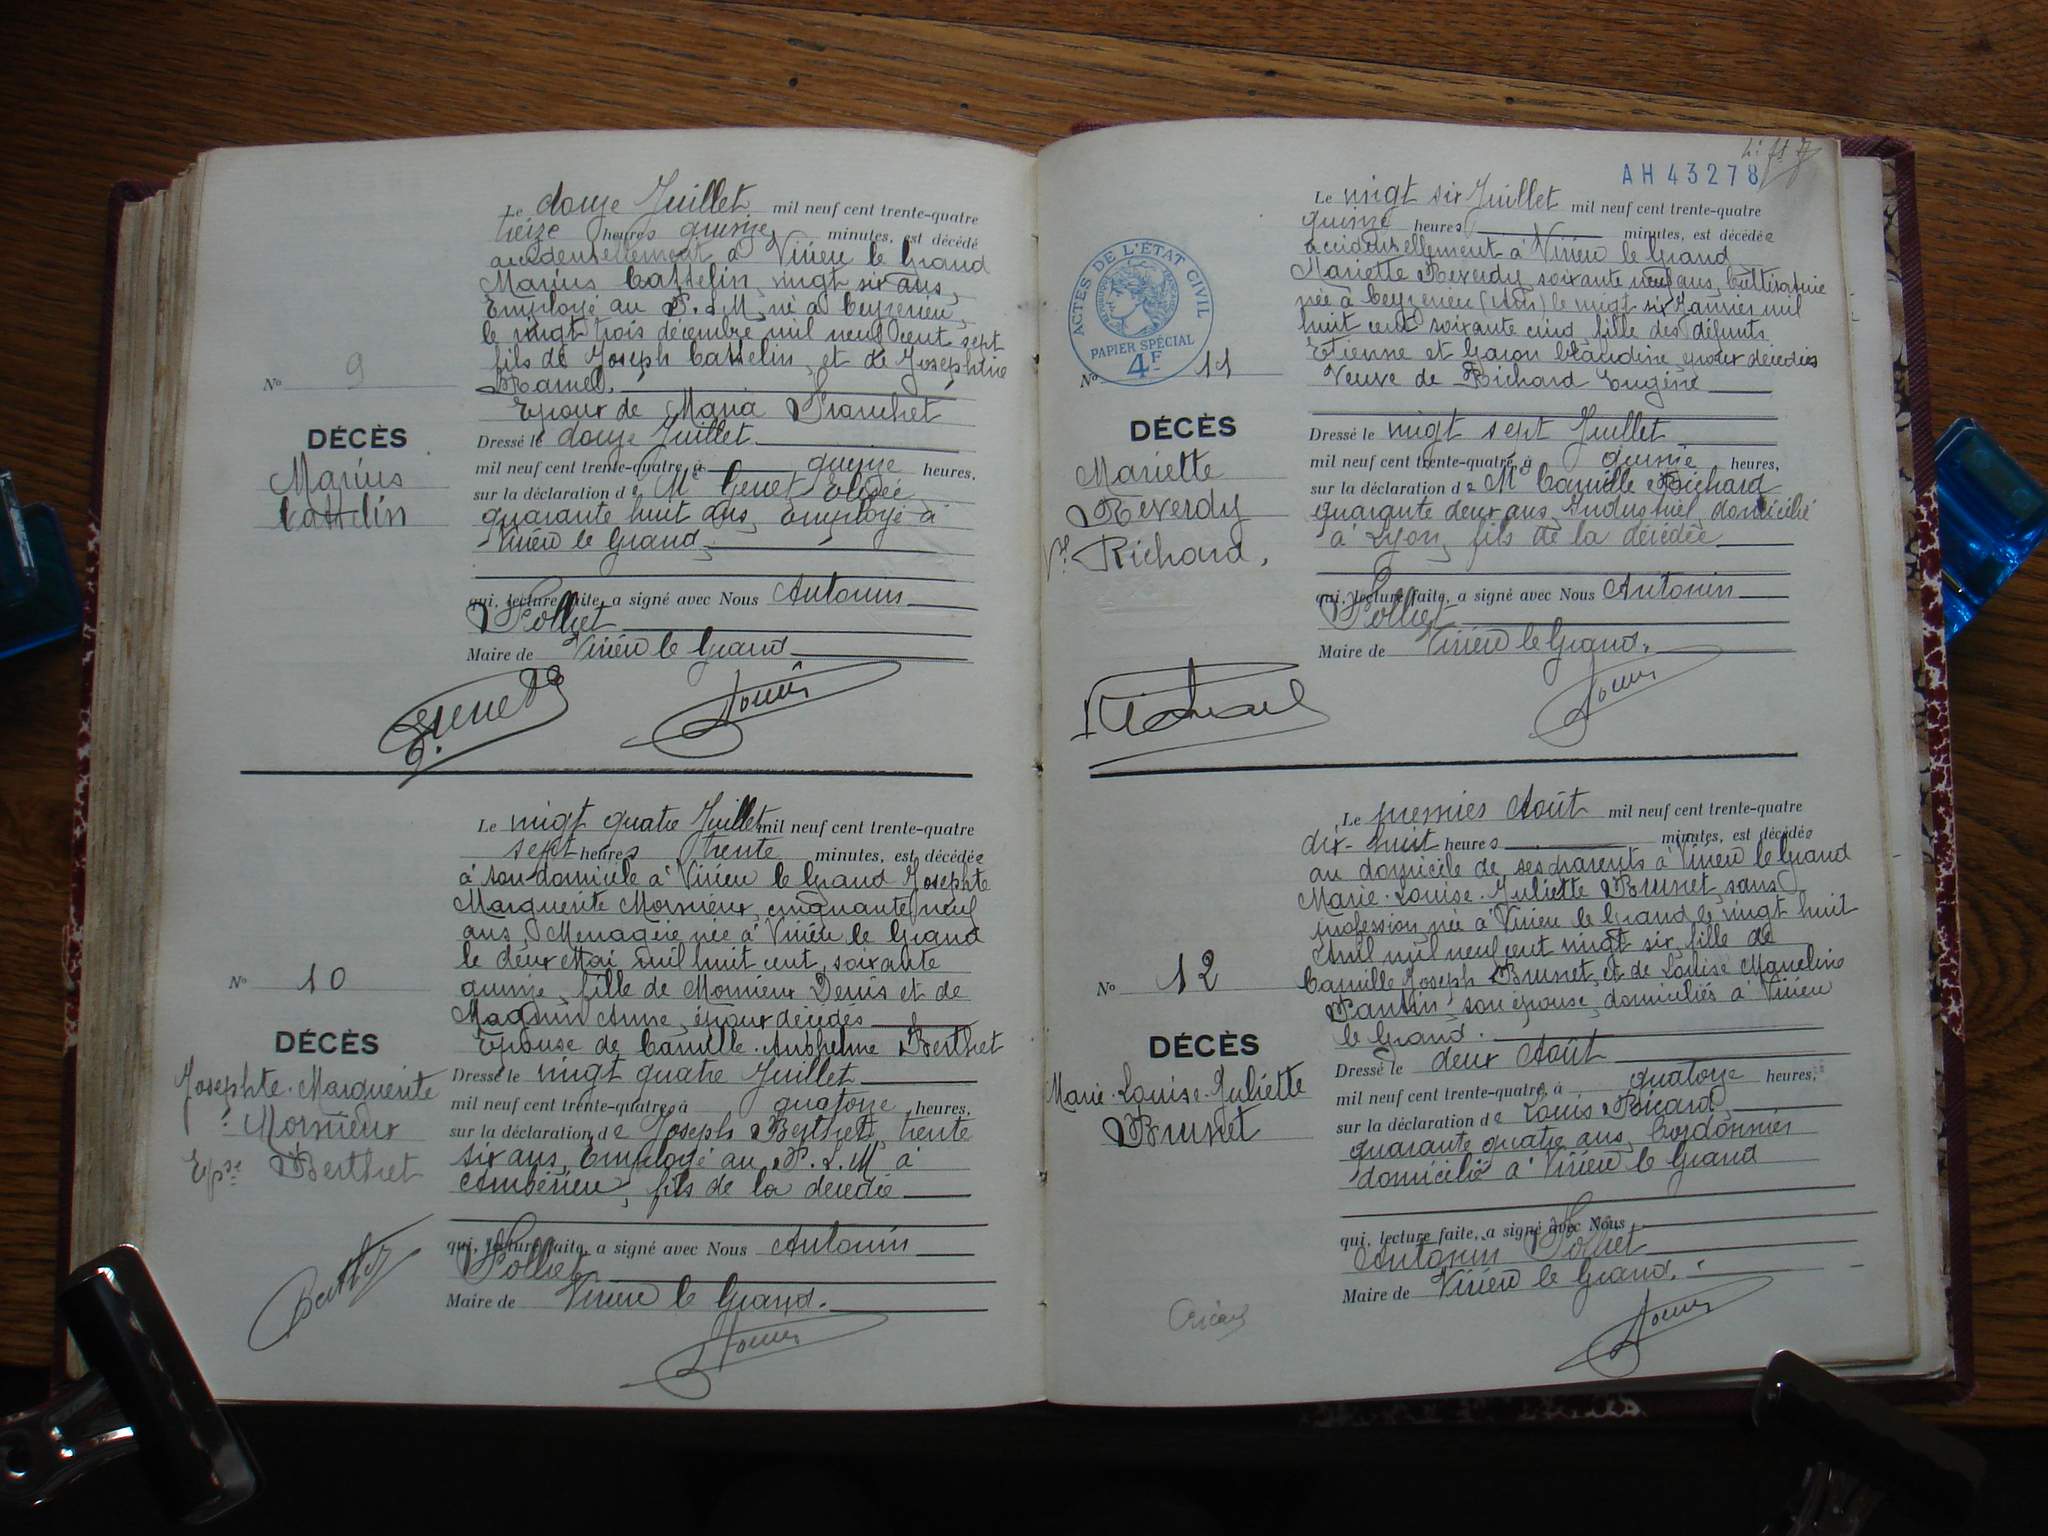 Le douze Juillet mil neuf cent trente-quatre
treize heures quinze minutes, est décédé
accidentellement à Virieu le Grand
Marius Casselin, vingt six ans,
Employé au P.L.M, né à Ceyzerieu,
le vingt trois décembre mil neuf cent sept
fils de Joseph Casselin, et de Josephine
Ramel.
Epoux de Maria Franchet
Nº 9
DÉCÈS
Marius
Casselin
Dressé le douze Juillet
mil neuf cent trente-quatre, à quinze heures,
sur la déclaration de Mr Genet Elisée
quarante huit ans, Employé à
Virieu le Grand,
qui, lecture faite, a signé avec Nous Antonin
Polliet
Maire de Virieu le Grand
Le vingt quatre Juillet mil neuf cent trente-quatre
sept heures trente minutes, est décédée
à son domicile à Virieu le Grand Josephte
Marguerite Mornieux, cinquante neuf
ans, Menagère née à Virieu le Grand
le deux Mai mil huit cent soixante
quinze, fille de Mornieux Denis et de
Anne, époux décédés
Epouse de Camille Anthelme Berthet
Nº 10
DÉCÈS
Josephte-Marguerite
Mornieux
Epse Berthet
Dressé le vingt quatre Juillet
mil neuf cent trente-quatre, à quatorze heures,
sur la déclaration de Joseph Berthet, trente
six ans, Employé au P.L.M à
Ambérieu, fils de la décédée
qui, lecture faite, a signé avec Nous Antonin
Polliet
Maire de Virieu le Grand.
AH 43278
Le vingt six Juillet mil neuf cent trente-quatre
quinze heures minutes, est décédée
accidentellement à Virieu le Grand
Mariette Reverdy soixante neuf ans, Cultivatrice
née à Ceyzerieu (Ain) le vingt six Janvier mil
huit cent soixante cinq, fille des défunts
Etienne et Garon Claudine, époux décédés
Veuve de Richard Eugène
ACTES DE L'ÉTAT CIVIL
PAPIER SPÉCIAL
4F
Nº 11
DÉCÈS
Mariette
Reverdy
Vve Richard,
Dressé le vingt sept Juillet
mil neuf cent trente-quatre, à quinze heures,
sur la déclaration de Mr Camille Richard
quarante deux ans, Industriel, domicilié
à Lyon, fils de la décédée
qui, lecture faite, a signé avec Nous Antonin
Polliet
Maire de Virieu le Grand.
Richard
Le premier Août mil neuf cent trente-quatre
dix-huit heures minutes, est décédée
au domicile de ses parents à Virieu le Grand
Marie-Louise-Juliette Brunet, sans
profession, née à Virieu le Grand le vingt huit
Avril mil neuf cent vingt six, fille de
Camille Joseph Brunet, et de Louise Marceline
Pantin, son épouse, domiciliés à Virieu
le Grand.
Nº 12
DÉCÈS
Marie-Louise-Juliette
Brunet
Dressé le deux Août
mil neuf cent trente-quatre, à quatorze heures,
sur la déclaration de Louis Ricard,
quarante quatre ans, Cordonnier
domicilié à Virieu le Grand
qui, lecture faite, a signé avec Nous
Antonin Polliet
Maire de Virieu le Grand.